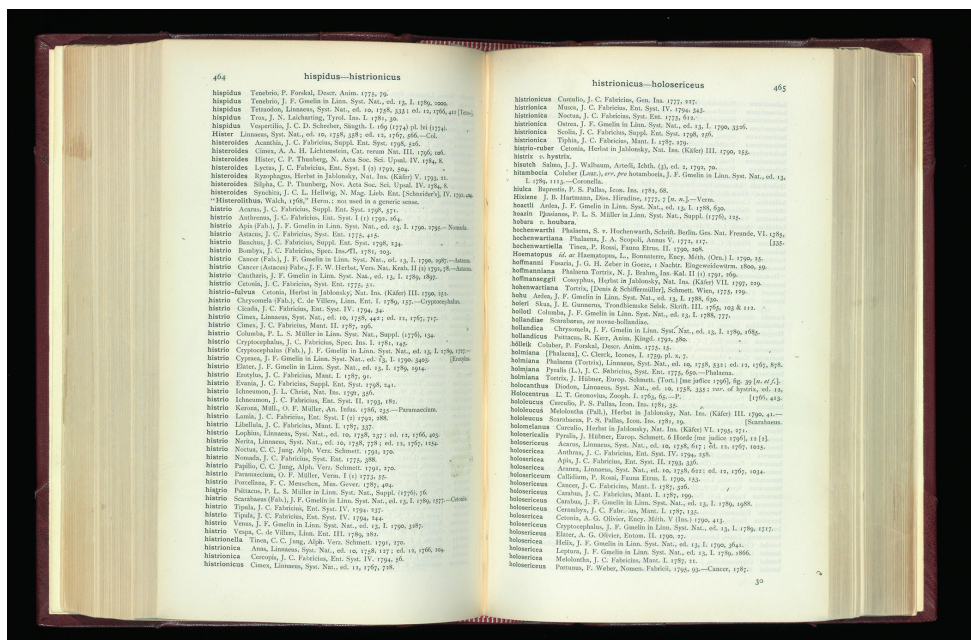 464
hispidus—histrionicus
hispidus Tenebrio, P. Forskal, Descr. Anim. 1775, 79.
hispidus Tenebrio, J. F. Gmelin in Linn. Syst. Nat., ed. 13, I. 1789, 2000.
hispidus Tetraodon, Linnaeus, Syst. Nat., ed. 10, 1758, 333; ed. 12, 1766, 411 [Tetro].
hispidus Trox, J. N. Laicharting, Tyrol. Ins. I. 1781, 30.
hispidus Vespertilio, J. C. D. Schreber, Säugth. I. 169 (1774) pl. lvi (1774).
Hister Linnaeus, Syst. Nat., ed. 10, 1758, 358; ed. 12, 1767, 566.—Col.
histeroides Acanthia, J. C. Fabricius, Suppl. Ent. Syst. 1798, 526.
histeroides Cimex, A. A. H. Lichtenstein, Cat. rerum Nat. III. 1796,
histeroides Hister, C. P. Thunberg, N. Acta Soc. Sci. Upsal. IV. 1784, 8.
histeroides Lyctus, J. C. Fabricius, Ent. Syst. I (2) 1792, 504.
histeroides Rynophagus, Herbst in Jablonsky, Nat. Ins. (Käfer) V. 1793, 21.
histeroides Silpha, C. P. Thunberg, Nov. Acta Soc. Sci. Upsal. IV. 1784, 8.
histeroides Synchita, J. C. L. Hellwig, N. Mag. Lieb. Ent. [Schneider's], IV. 1792,
"Histerolithus, Walch, 1768," Herm.; not used in a generic sense.
histrio Acarus, J. C. Fabricius, Suppl. Ent. Syst. 1798, 571.
histrio Anthrenus, J. C. Fabricius, Ent. Syst. I (1) 1792, 264.
histrio Apis (Fab.), J. F. Gmelin in Linn. Syst. Nat., ed. 13, I. 1790, 2795.—Nomada.
histrio Astacus, J. C. Fabricius, Syst. Ent. 1775, 415.
histrio Banchus, J. C. Fabricius, Suppl. Ent. Syst. 1798, 234.
histrio Bombyx, J. C. Fabricius, Spec. Ins. II. 1781, 203.
histrio Cancer (Fab.), J. F. Gmelin in Linn. Syst. Nat., ed. 13, I. 1790, 2987.—Astacus.
histrio Cancer (Astacus) Fabr., J. F. W. Herbst, Vers. Nat. Krab. II (2) 1792, 78.—Astacus.
histrio Cantharis, J. F. Gmelin in Linn. Syst. Nat., ed. 13, I. 1789, 1897.
histrio Cetonia, J. C. Fabricius, Syst. Ent. 1775, 51.
histrio-fulvus Cetonia, Herbst in Jablonsky, Nat. Ins. (Käfer) III. 1790, 152.
histrio Chrysomela (Fab.), C. de Villers, Linn. Ent. I. 1789, 157.—Cryptocephalus.
histrio Cicada, J. C. Fabricius, Ent. Syst. IV. 1794, 34.
histrio Cimex, Linnaeus, Syst. Nat., ed. 10, 1758, 442; ed. 12, 1767, 717.
histrio Cimex, J. C. Fabricius, Mant. II. 1787, 296.
histrio Columba, P. L. S. Müller in Linn. Syst. Nat., Suppl. (1776), 134.
histrio Cryptocephalus, J. C. Fabricius, Spec. Ins. I. 1781, 145.
histrio Cryptocephalus (Fab.), J. F. Gmelin in Linn. Syst. Nat., ed. 13, I. 1789, 1717.—
histrio Cypraea, J. F. Gmelin in Linn. Syst. Nat., ed. 13, I. 1790, 3403. [Erotylus.
histrio Elater, J. F. Gmelin in Linn. Syst. Nat., ed. 13, I. 1789, 1914.
histrio Erotylus, J. C. Fabricius, Mant. I. 1787, 91.
histrio Evania, J. C. Fabricius, Suppl. Ent. Syst. 1798, 241.
histrio Ichneumon, J. L. Christ, Nat. Ins. 1791, 356.
histrio Ichneumon, J. C. Fabricius, Ent. Syst. II. 1793, 182.
histrio Kerona, Müll., O. F. Müller, An. Infus. 1786, 235.—Paramaecium.
histrio Lamia, J. C. Fabricius, Ent. Syst. I (2) 1792, 288.
histrio Libellula, J. C. Fabricius, Mant. I. 1787, 337.
histrio Lophius, Linnaeus, Syst. Nat., ed. 10, 1758, 237; ed. 12, 1766, 403.
histrio Nerita, Linnaeus, Syst. Nat., ed. 10, 1758, 778; ed. 12, 1767, 1254.
histrio Noctua, C. C. Jung, Alph. Verz. Schmett. 1791, 270.
histrio Nomada, J. C. Fabricius, Syst. Ent. 1775, 388.
histrio Papilio, C. C. Jung, Alph. Verz. Schmett. 1791, 270.
histrio Paramaecium, O. F. Müller, Verm. I (1) 1773, 55.
histrio Porcellana, F. C. Meuschen, Mus. Gever. 1787, 404.
histrio Psittacus, P. L. S. Müller in Linn. Syst. Nat., Suppl. (1776), 76.
histrio Scarabaeus (Fab.), J. F. Gmelin in Linn. Syst. Nat., ed. 13, I. 1789, 1577.—Cetonia.
histrio Tipula, J. C. Fabricius, Ent. Syst. IV. 1794, 237.
histrio Tipula, J. C. Fabricius, Ent. Syst. IV. 1794, 244.
histrio Venus, J. F. Gmelin in Linn. Syst. Nat., ed. 13, I. 1790, 3287.
histrio Vespa, C. de Villers, Linn. Ent. III. 1789, 282.
histrionella Tinea, C. C. Jung, Alph. Verz. Schmett. 1791, 270.
histrionica Anas, Linnaeus, Syst. Nat., ed. 10, 1758, 127; ed. 12, 1766, 204.
histrionica Cercopis, J. C. Fabricius, Ent. Syst. IV. 1794, 56.
histrionicus Cimex, Linnaeus, Syst. Nat., ed. 12, 1767, 728.
histrionicus—holosericeus
465
histrionicus Curculio, J. C. Fabricius, Gen. Ins. 1777, 227.
histrionica Musca, J. C. Fabricius, Ent. Syst. IV. 1794, 343.
histrionica Noctua, J. C. Fabricius, Syst. Ent. 1775, 612.
histrionica Ostrea, J. F. Gmelin in Linn. Syst. Nat., ed. 13, I. 1790, 3326.
histrionica Scolia, J. C. Fabricius, Suppl. Ent. Syst. 1798, 256.
histrionica Tiphia, J. C. Fabricius, Mant. I. 1787, 279.
histrio-ruber Cetonia, Herbst in Jablonsky, Nat. Ins. (Käfer) III. 1790, 253.
histrix v. hystrix.
histsch Salmo, J. J. Walbaum, Artedi, Ichth. (3), ed. 2, 1792, 70.
hitambocia Coluber (Laur.), err. pro hotamboeia, J. F. Gmelin in Linn. Syst. Nat., ed. 13,
I. 1789, 1113.—Coronella.
hiulca Buprestis, P. S. Pallas, Icon. Ins. 1782, 68.
Hixiene J. B. Hartmann, Diss. Hirudine, 1777, 7 [n. n.].—Verm.
hoactli Ardea, J. F. Gmelin in Linn. Syst. Nat., ed. 13, I. 1788, 630.
hoazin Phasianus, P. L. S. Müller in Linn. Syst. Nat., Suppl. (1776), 125.
hobara v. houbara.
hochenwarthi Phalaena, S. v. Hochenwarth, Schrift. Berlin. Ges. Nat. Freunde, VI. 1785,
hochenwartiana Phalaena, J. A. Scopoli, Annus V. 1772, 117. [335.
hochenwartiella Tinea, P. Rossi, Fauna Etrus. II. 1790, 208.
Hoematopus id. ac Haematopus, L., Bonnaterre, Ency. Méth. (Orn.) I. 1790, 25.
hoffmanni Fusaria, J. G. H. Zeder in Goeze, 1 Nachtr. Eingeweidewürm. 1800, 59.
hoffmanniana Phalaena Tortrix, N. J. Brahm, Ins. Kal. II (1) 1791, 269.
hoffmanseggii Cossyphus, Herbst in Jablonsky, Nat. Ins. (Käfer) VII. 1797, 229.
hohenwartiana Tortrix, [Denis & Schiffermüller], Schmett. Wien, 1775, 129.
hohu Ardea, J. F. Gmelin in Linn. Syst. Nat., ed. 13, I. 1788, 630.
holeri Skua, J. E. Gunnerus, Trondhiemske Selsk. Skrift. III. 1765, 103 & 112.
hollotl Columba, J. F. Gmelin in Linn. Syst. Nat., ed. 13, I. 1788, 777.
hollandiae Scarabaeus, see novae-hollandiae.
hollandica Chrysomela, J. F. Gmelin in Linn. Syst. Nat., ed. 13, I. 1789, 1685.
hollandicus Psittacus, R. Kerr, Anim. Kingd. 1792, 580.
hölleik Coluber, P. Forskal, Descr. Anim. 1775, 15.
holmiana [Phalaena], C. Clerck, Icones, I. 1759, pl. 2, 7.
holmiana Phalaena (Tortrix), Linnaeus, Syst. Nat., ed. 10, 1758, 532; ed. 12, 1767, 878.
holmiana Pyralis (L.), J. C. Fabricius, Syst. Ent. 1775, 650.—Phalaena.
holmiana Tortrix, J. Hübner, Europ. Schmett. (Tort.) [me judice 1796], fig. 39 [n. et f.].
holocanthus Diodon, Linnaeus, Syst. Nat., ed. 10, 1758, 335; var. of hystrix, ed. 12,
Holocentrus L. T. Gronovius, Zooph. I. 1763, 65.—P. [1766, 413.
hololeucus Curculio, P. S. Pallas, Icon. Ins. 1781, 35.
hololeucus Melolontha (Pall.), Herbst in Jablonsky, Nat. Ins. (Käfer) III. 1790, 41.—
hololeucus Scarabaeus, P. S. Pallas, Icon. Ins. 1781, 19. [Scarabaeus.
holomelanus Curculio, Herbst in Jablonsky, Nat. Ins. (Käfer) VI. 1795, 271.
holosericalis Pyralis, J. Hübner, Europ. Schmett. 6 Horde [me judice 1796], 12 [2].
holosericeus Acarus, Linnaeus, Syst. Nat., ed. 10, 1758, 617; ed. 12, 1767, 1025.
holosericea Anthrax, J. C. Fabricius, Ent. Syst. IV. 1794, 258.
holosericea Apis, J. C. Fabricius, Ent. Syst. II. 1793, 336.
holosericea Aranea, Linnaeus, Syst. Nat., ed. 10, 1758, 622; ed. 12, 1767, 1034.
holosericeum Callidium, P. Rossi, Fauna Etrus. I. 1790, 153.
holosericeus Cancer, J. C. Fabricius, Mant. I. 1787, 326.
holosericeus Carabus, J. C. Fabricius, Mant. I. 1787, 199.
holosericeus Carabus, J. F. Gmelin in Linn. Syst. Nat., ed. 13, I. 1789, 1988.
holosericeus Cerambyx, J. C. Fabricius, Mant. I. 1787, 135.
holosericea Cetonia, A. G. Olivier, Ency. Méth. V (Ins.) 1790, 413.
holosericeus Cryptocephalus, J. F. Gmelin in Linn. Syst. Nat., ed. 13, I. 1789, 1717.
holosericeus Elater, A. G. Olivier, Entom. II. 1790, 27.
holosericea Helix, J. F. Gmelin in Linn. Syst. Nat., ed. 13, I. 1790, 3641.
holosericea Leptura, J. F. Gmelin in Linn. Syst. Nat., ed. 13, I. 1789, 1866.
holosericea Melolontha, J. C. Fabricius, Mant. I. 1787, 21.
holosericeus Portunus, F. Weber, Nomen. Fabricii, 1795, 93.—Cancer, 1787.
30